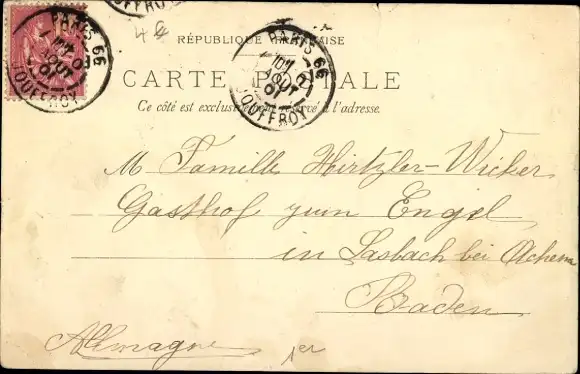 PARIS 66
JOUFFROY
4
RÉPUBLIQUE FRANÇAISE
PARIS 66
JOUFFROY
CARTE POSTALE
Ce côté est exclusivement réservé à l'adresse.
M Familie Hirtzler-Wicker
Gasthof zum Engel
in Lasbach bei Achern
Baden
Allemagne
1er